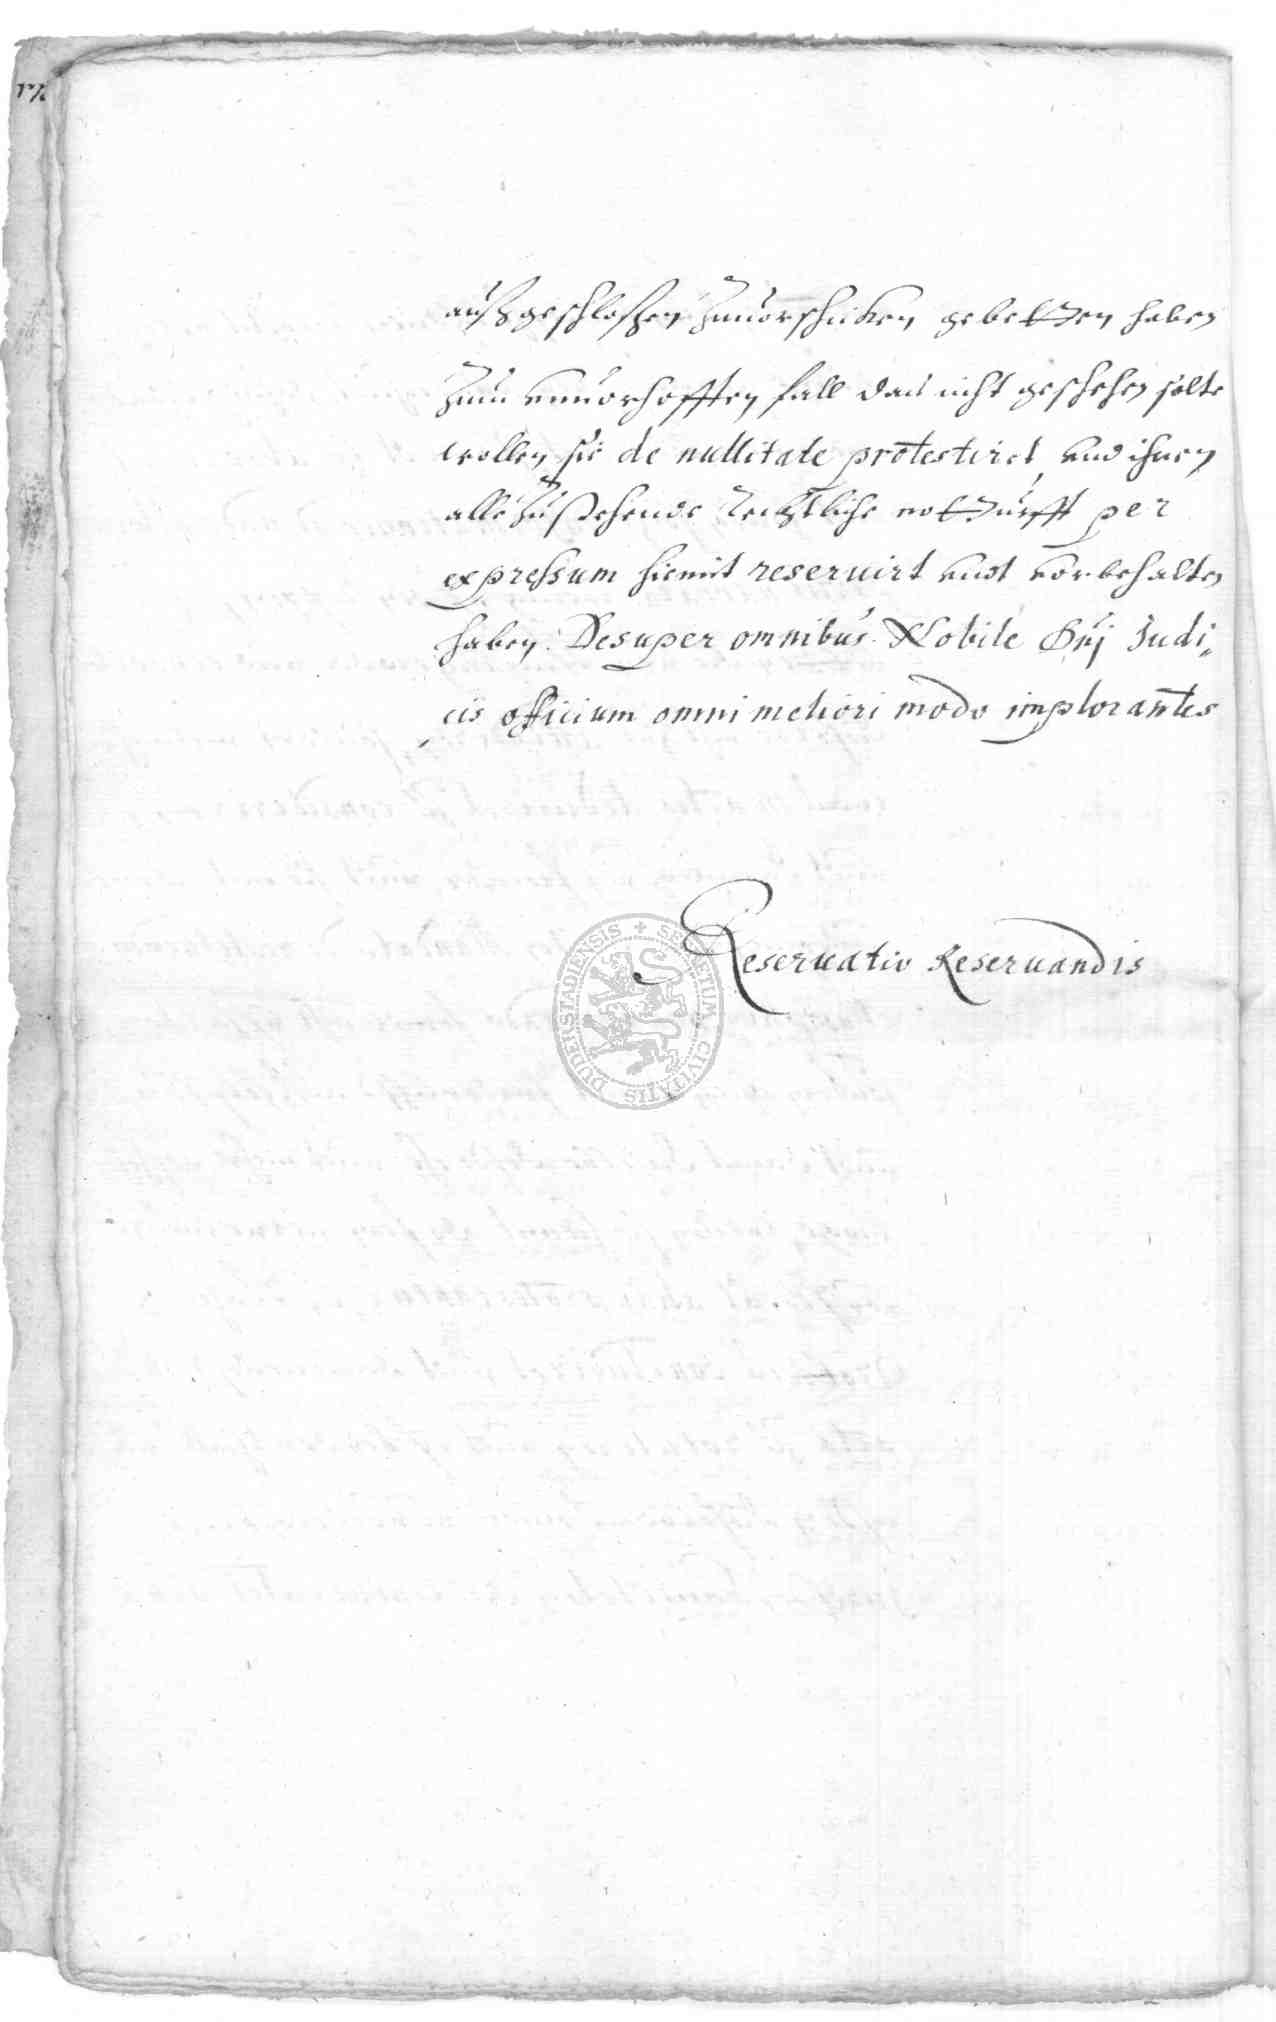 außgeschloßen Zuuorschicken gebetten haben
Zum vnuorhofften fall das nicht geschehen solte
wollen sie de nullitate protestiret vnd ihnen
alle Zustehende Rechtliche notturfft per
expressum hiemit reseruirt vndt vorbehalten
haben. Desuper omnibus Nobile Dnj Judi„
cis officium omni meliori modo implorantes
Reseruatis Reseruandis
SECRETUM CIVITATIS DUDERSTADIENSIS